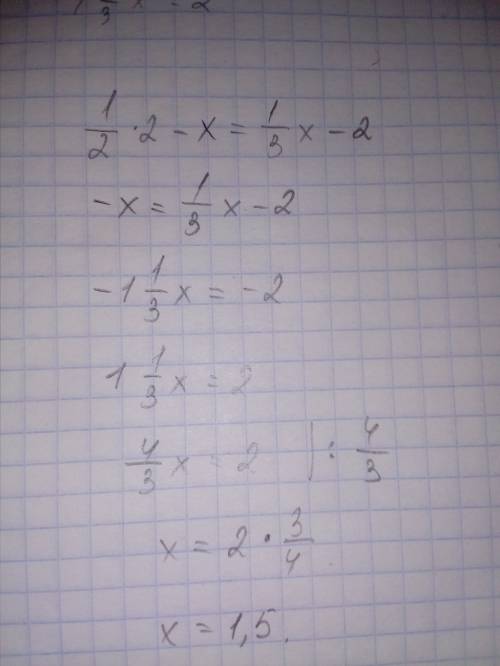 1 1/3 x = 2
1/2 · 2 - x = 1/3 x - 2
- x = 1/3 x - 2
- 1 1/3 x = - 2
1 1/3 x = 2
4/3 x = 2 | : 4/3
x = 2 · 3/4
x = 1,5.